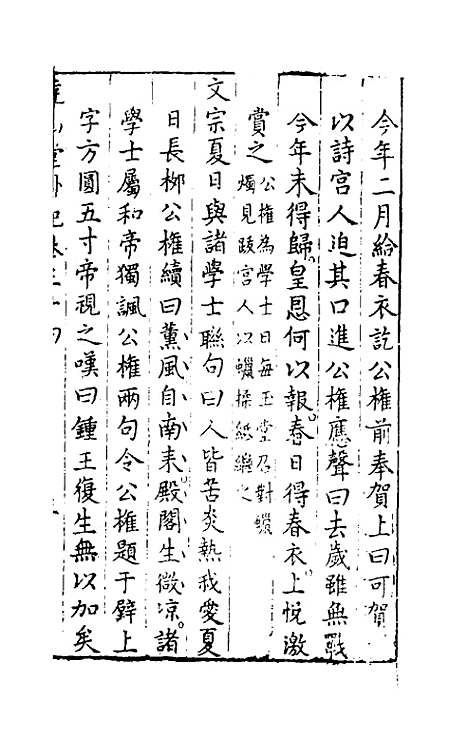 今年二月給春衣訖公權前奉賀上曰可賀
以詩宮人迫其口進公權應聲曰去歲雖無戰
今年未得歸皇恩何以報春日得春衣上悅激
賞之公權為學士日每玉堂召對蠟
燭見跋宮人以蠟揉紙繼之
文宗夏日與諸學士聯句曰人皆苦炎熱我愛夏
日長柳公權續曰薰風自南来殿閣生微凉諸
學士屬和帝獨諷公權兩句令公權題于壁上
字方圓五寸帝視之嘆曰鍾王復生無以加矣
堯山堂外紀卷三十四